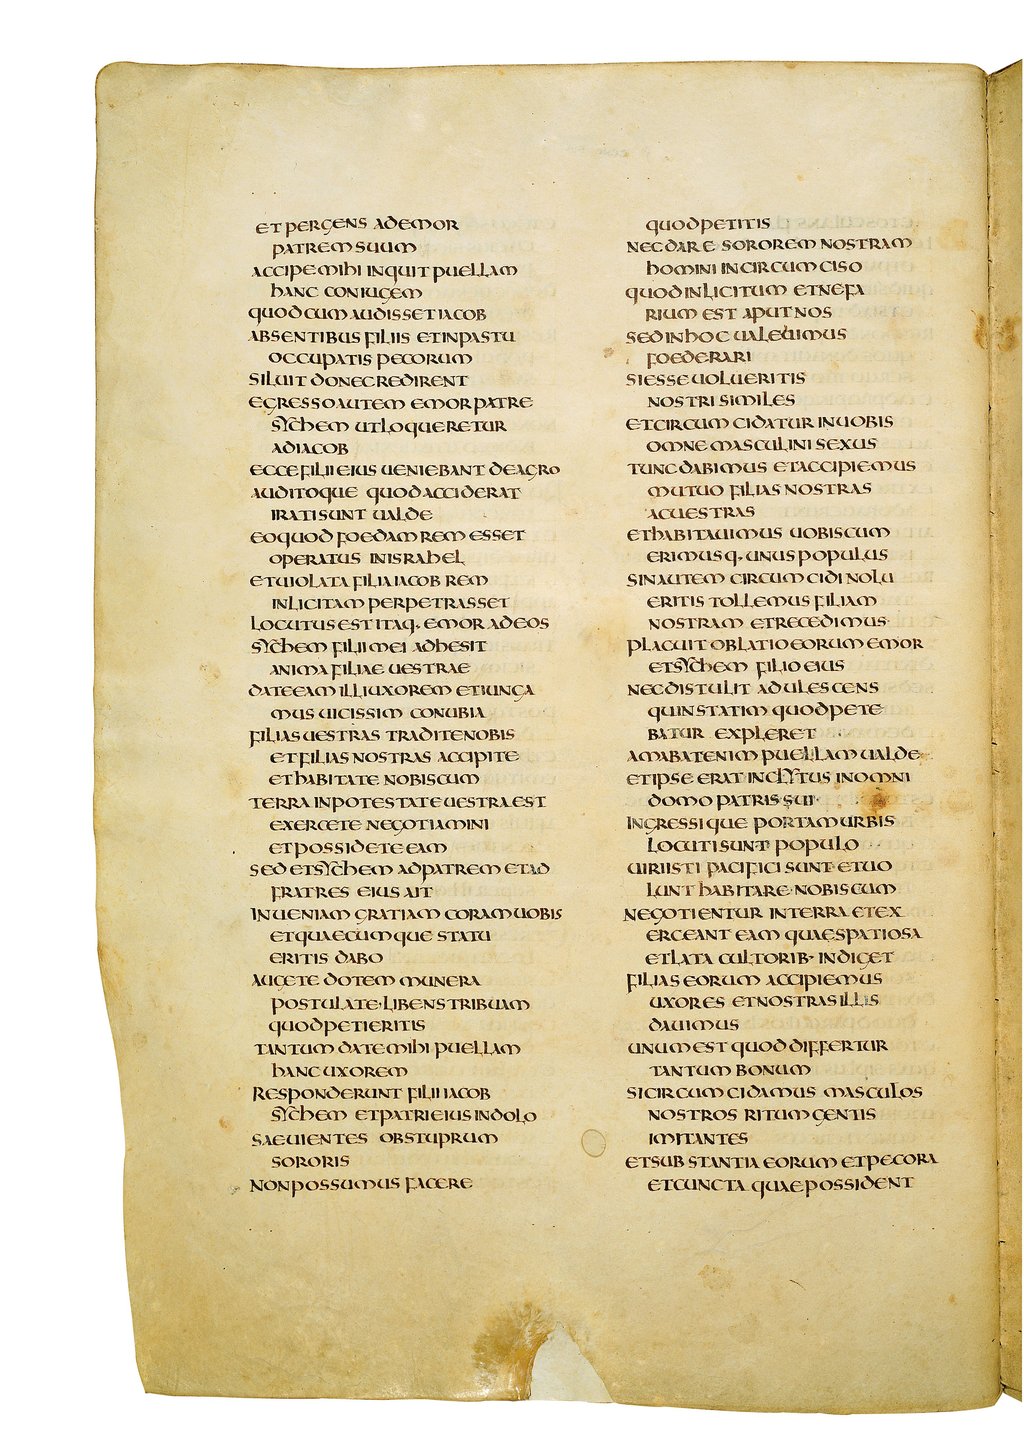 ET PERGENS AD EMOR
PATREM SUUM
ACCIPE MIHI INQUIT PUELLAM
HANC CONIUGEM
QUOD CUM AUDISSET IACOB
ABSENTIBUS FILIIS ET IN PASTU
OCCUPATIS PECORUM
SILUIT DONEC REDIRENT
EGRESSO AUTEM EMOR PATRE
SYCHEM UT LOQUERETUR
AD IACOB
ECCE FILII EIUS UENIEBANT DE AGRO
AUDITOQUE QUOD ACCIDERAT
IRATI SUNT UALDE
EO QUOD FOEDAM REM ESSET
OPERATUS IN ISRAHEL
ET UIOLATA FILIA IACOB REM
INLICITAM PERPETRASSET
LOCUTUS EST ITAQ· EMOR AD EOS
SYCHEM FILII MEI ADHESIT
ANIMA FILIAE UESTRAE
DATE EAM ILLI UXOREM ET IUNGA
MUS UICISSIM CONUBIA
FILIAS UESTRAS TRADITE NOBIS
ET FILIAS NOSTRAS ACCIPITE
ET HABITATE NOBISCUM
TERRA IN POTESTATE UESTRA EST
EXERCETE NEGOTIAMINI
ET POSSIDETE EAM
SED ET SYCHEM AD PATREM ET AD
FRATRES EIUS AIT
INUENIAM GRATIAM CORAM UOBIS
ET QUAECUMQUE STATU
ERITIS DABO
AUGETE DOTEM MUNERA
POSTULATE· LIBENS TRIBUAM
QUOD PETIERITIS
TANTUM DATE MIHI PUELLAM
HANC UXOREM
RESPONDERUNT FILII IACOB
SYCHEM ET PATRI EIUS IN DOLO
SAEUIENTES OBSTUPRUM
SORORIS
NON POSSUMUS FACERE
QUOD PETITIS
NEC DARE SOROREM NOSTRAM
HOMINI INCIRCUMCISO
QUOD INLICITUM ET NEFA
RIUM EST APUT NOS
SED IN HOC UALEBIMUS
FOEDERARI
SI ESSE UOLUERITIS
NOSTRI SIMILES
ET CIRCUMCIDATUR IN UOBIS
OMNE MASCULINI SEXUS
TUNC DABIMUS ET ACCIPIEMUS
MUTUO FILIAS NOSTRAS
AC UESTRAS
ET HABITAUIMUS UOBISCUM
ERIMUSQ· UNUS POPULUS
SIN AUTEM CIRCUMCIDI NOLU
ERITIS TOLLEMUS FILIAM
NOSTRAM ET RECEDIMUS
PLACUIT OBLATIO EORUM EMOR
ET SYCHEM FILIO EIUS
NEC DISTULIT ADULESCENS
QUIN STATIM QUOD PETE
BATUR EXPLERET
AMABAT ENIM PUELLAM UALDE
ET IPSE ERAT INCLYTUS IN OMNI
DOMO PATRIS SUI
INGRESSIQUE PORTAM URBIS
LOCUTI SUNT POPULO
UIRI ISTI PACIFICI SUNT ET UO
LUNT HABITARE NOBISCUM
NEGOTIENTUR IN TERRA ET EX
ERCEANT EAM QUAE SPATIOSA
ET LATA CULTORIB· INDIGET
FILIAS EORUM ACCIPIEMUS
UXORES ET NOSTRAS ILLIS
DAUIMUS
UNUM EST QUOD DIFFERTUR
TANTUM BONUM
SI CIRCUMCIDAMUS MASCULOS
NOSTROS RITUM GENTIS
IMITANTES
ET SUBSTANTIA EORUM ET PECORA
ET CUNCTA QUAE POSSIDENT